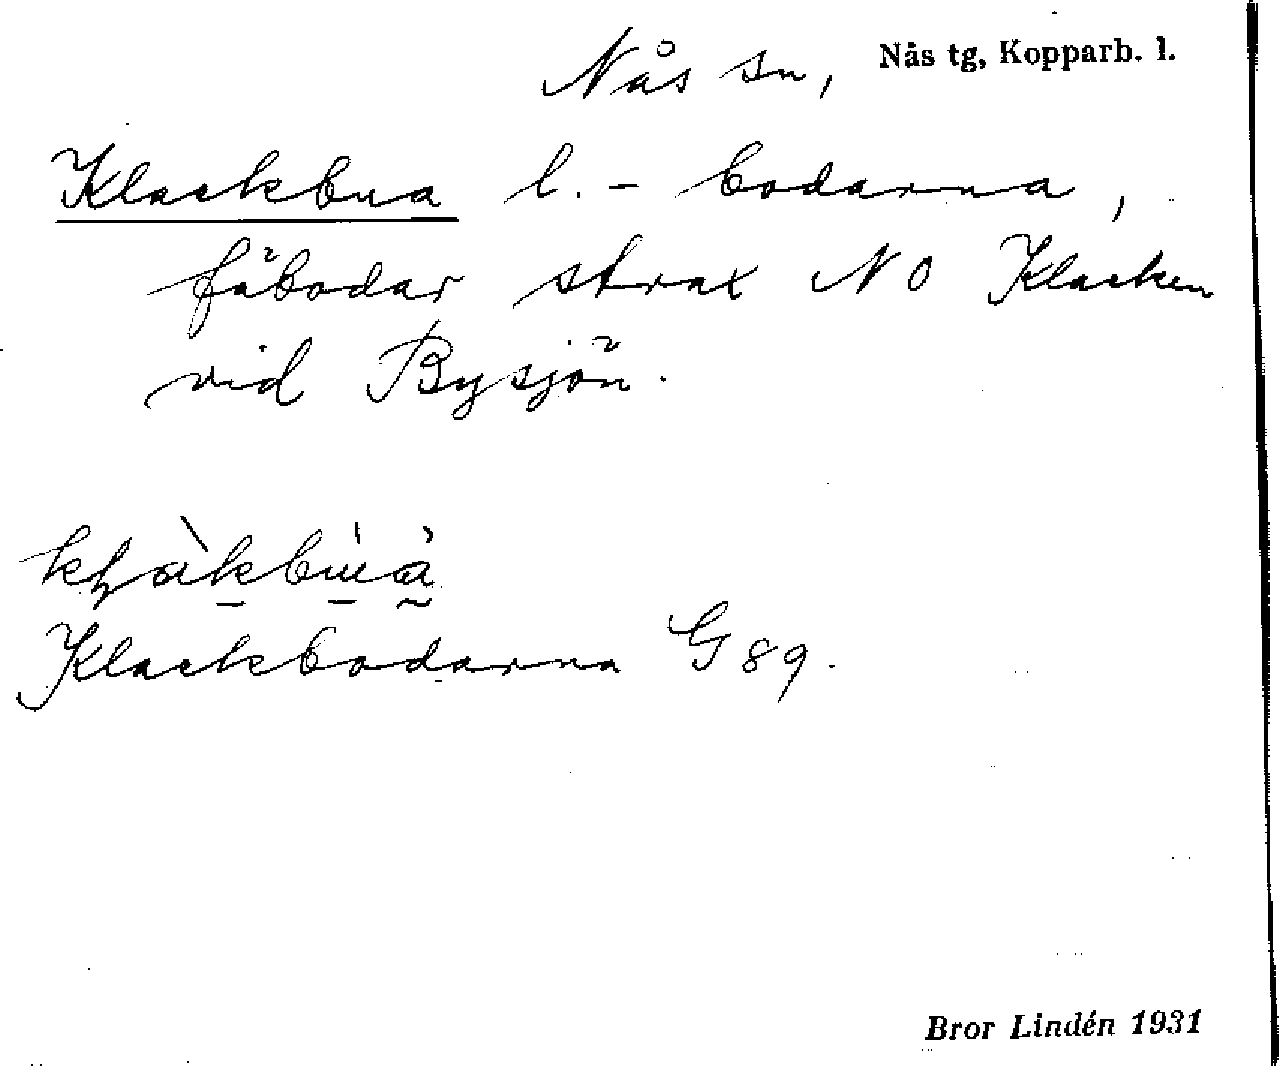 Nås sn, Nås tg, Kopparb. l.
Klackbua l. - bodarna,
fäbodar strax NO Klacken
vid Bysjön.
Klackbodarna G 89.
Bror Lindén 1931